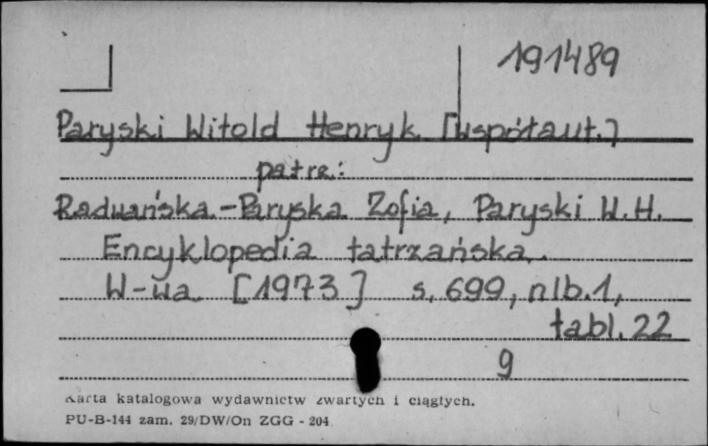 191489
Paryski Witold Henryk [współaut.]
patrz:
Radwańska-Paryska Zofia, Paryski W.H.
Encyklopedia tatrzańska.
W-wa [1973] s. 699, nlb. 1,
tabl. 22
9
Karta katalogowa wydawnictw zwartych i ciągłych.
PU-B-144 zam. 29/DW/On ZGG - 204